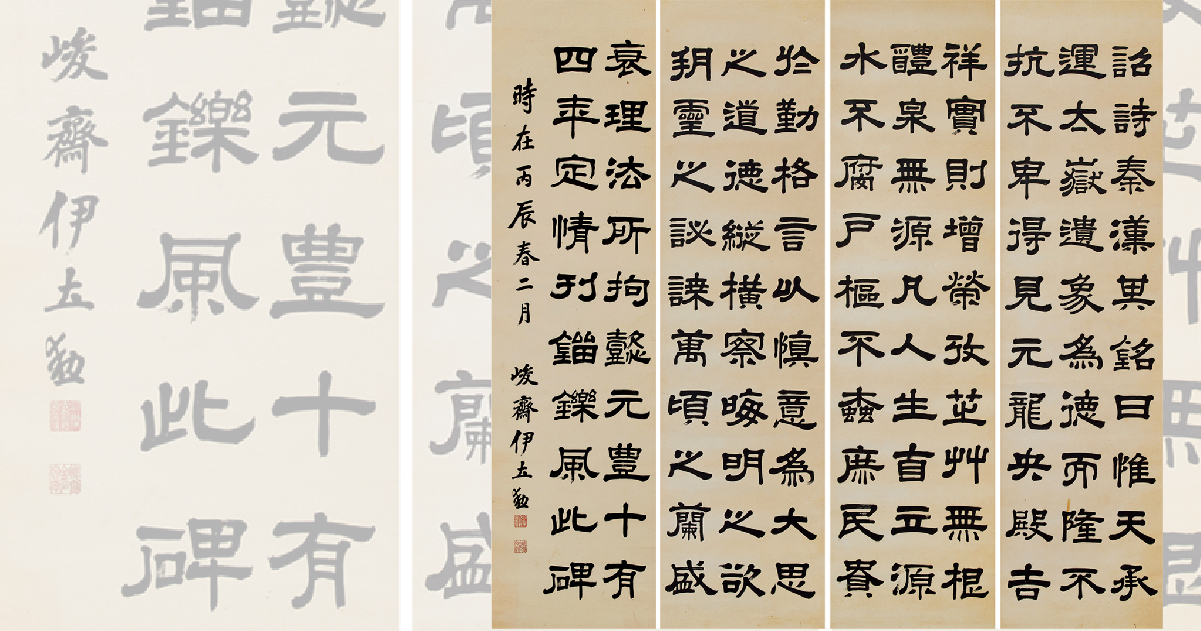 詔詩秦漢異銘曰惟天承
運太嶽遺象為德而隆不
抗不卑得見元龍央殿吉
祥實則增榮攷芷艸無根
醴泉無源凡人生自立源
水不腐戶樞不蠹庶民賁
於勤格言以慎意為大思
之道德縱橫察晦明之欲
靈之諫萬頃之蘭盛
衰理法所拘懿元豊十有
四年定情刊錙鑠風此碑
時在丙辰春二月 峻齋伊立勳
頃之蘭盛
懿元豊十有
錙鑠風此碑
峻齋伊立勳